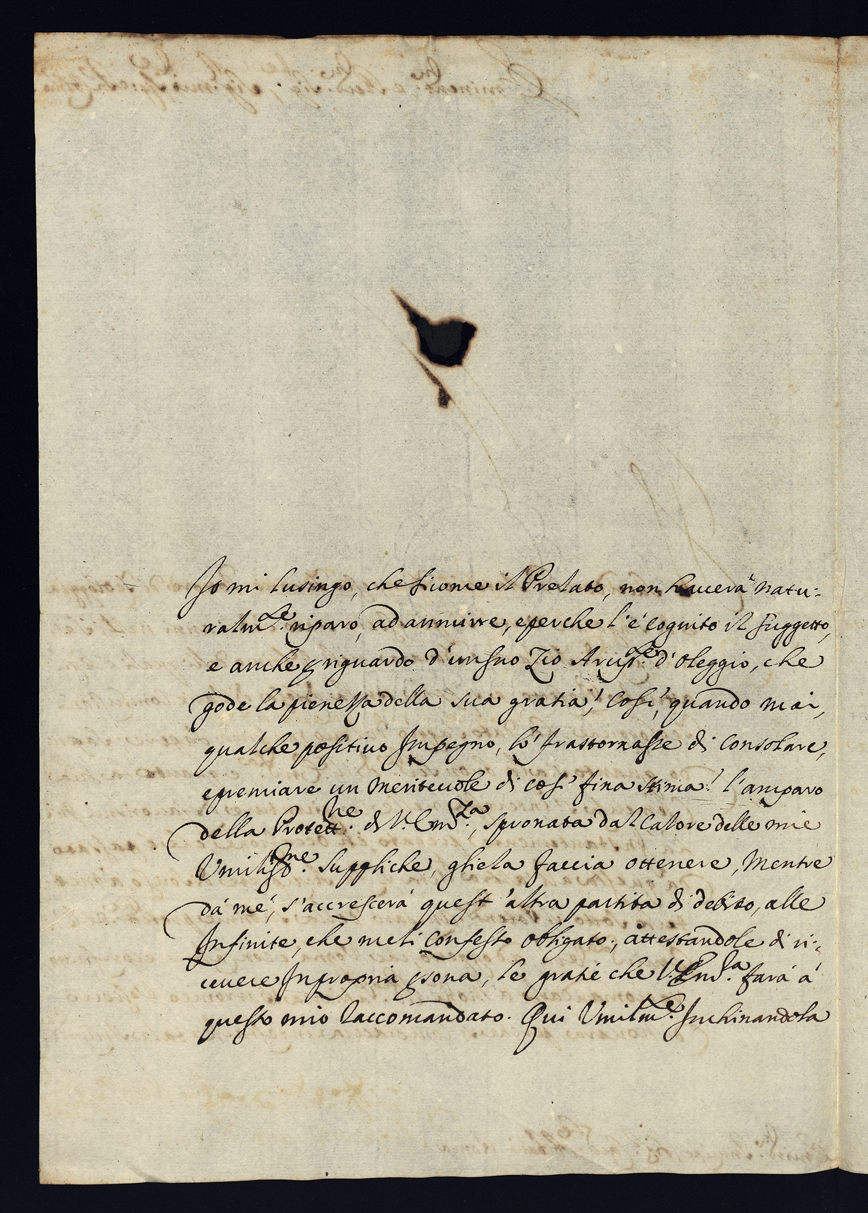 Io mi lusingo, che sicome il Prelato, non haverà natu:
ralm.te riparo, ad amirre, e perche l'è cognito il suggetto,
e anche p riguardo d'un suo Zio Arcip.te d'Oleggio, che
gode la pienezza della sua gratia, Così, quando mai,
qualche positivo Impegno, lo frastornasse di consolare,
e premiare un meritevole di così fina stima, l'amparo
della Protett.ne di V. Em.za, spronata dal Calore delle mie
Umiliss.me suppliche, gliela faccia ottenere, Mentre
da me, s'accrescerà quest'altra partita di debito, alle
Infinite, che me li confesso obligato, attestandole di ri:
cevere In propria psona, le gratie che V. Em.za farà à
questo mio Raccomandato. Qui Umilm.e Inchinandola